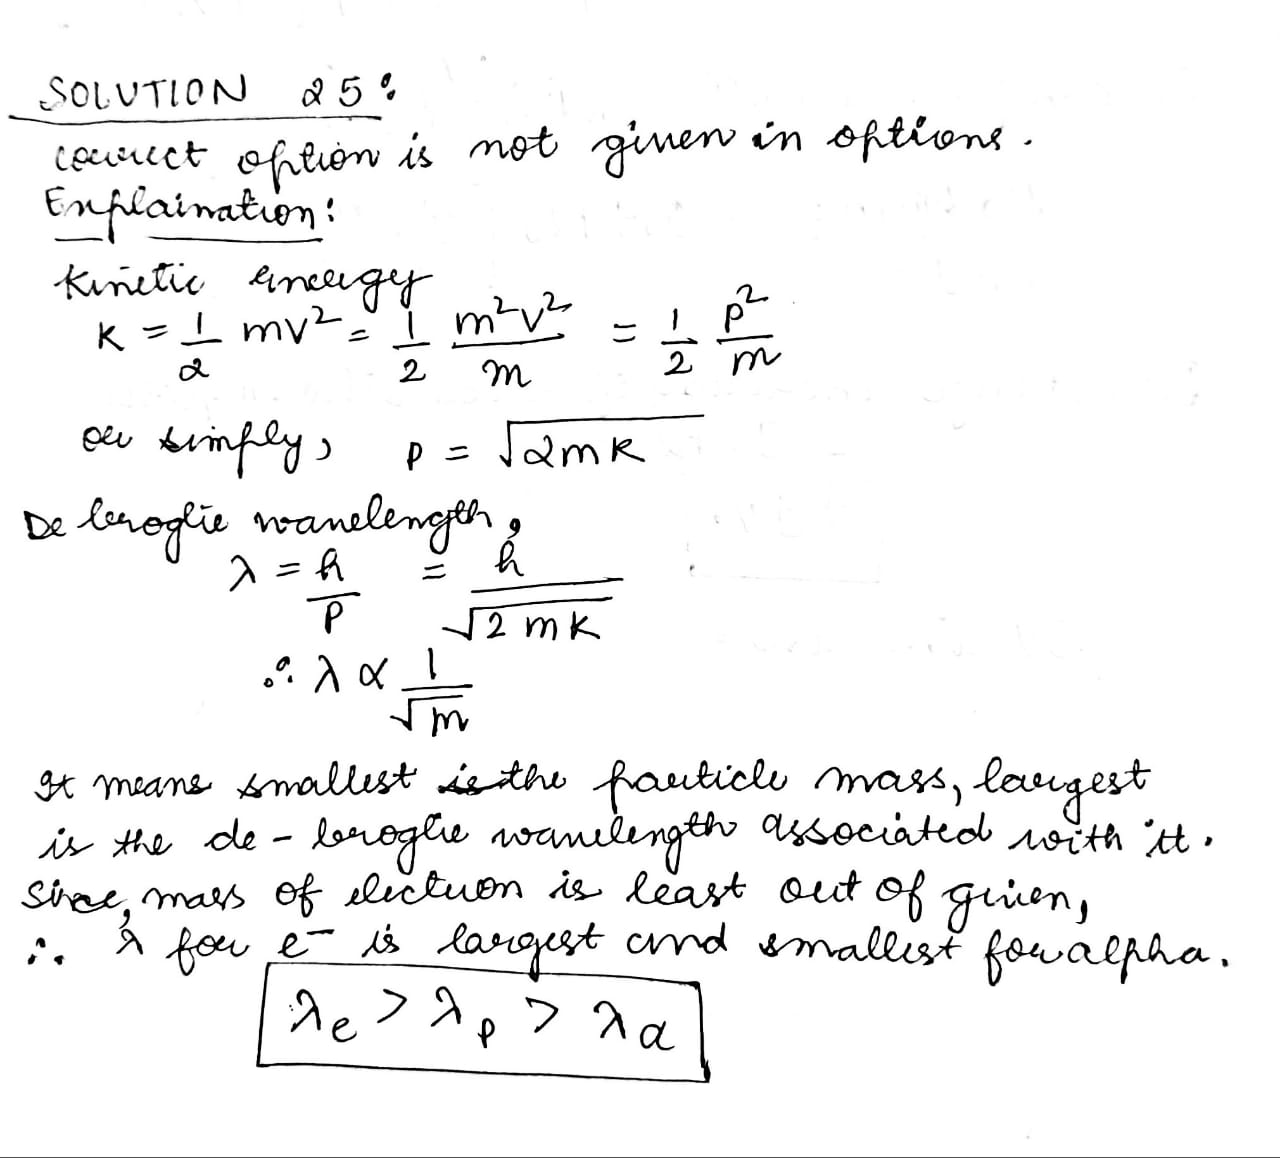 SOLUTION 25:
correct option is not given in options.
Explaination:
Kinetic Energy
K = 1/2 mv² = 1/2 m²v²/m = 1/2 p²/m
or simply, P = √2mK
De broglie wavelength,
λ = h/P = h/√2mK
∴ λ ∝ 1/√m
It means smallest is the particle mass, largest
is the de-broglie wavelength associated with it.
Since, mass of electron is least out of given,
∴ λ for e⁻ is largest and smallest for alpha.
λe > λp > λα